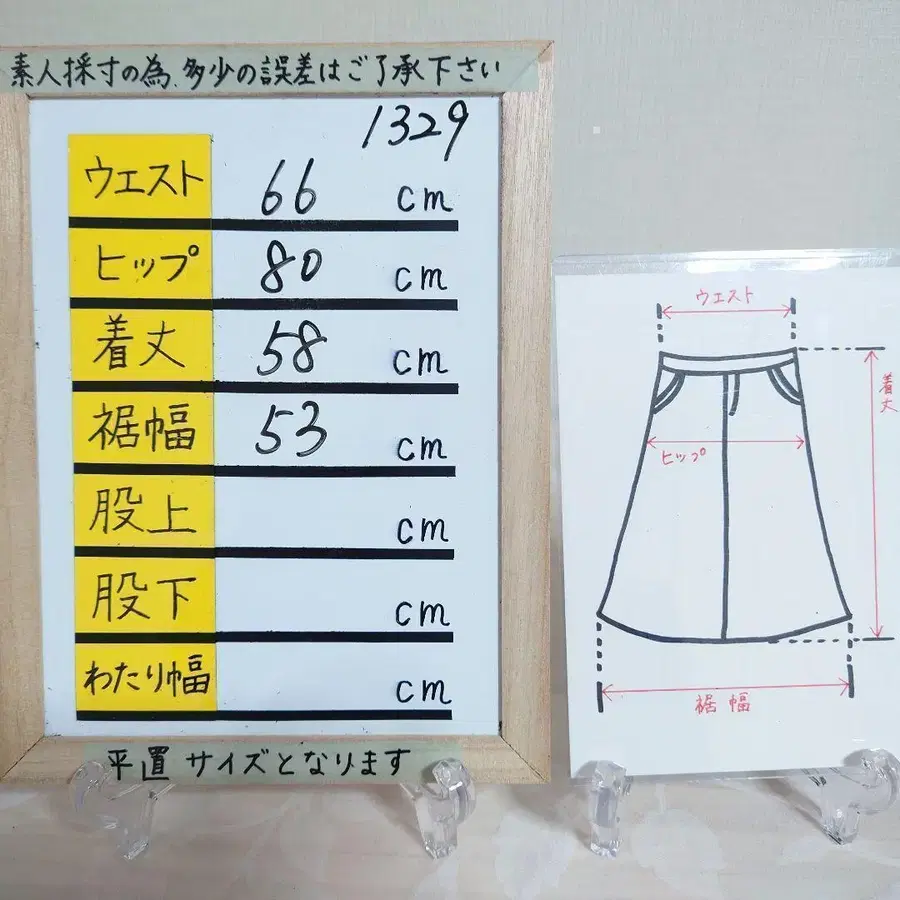 素人採寸の為、多少の誤差はご了承下さい
1329
ウエスト 66 cm
ヒップ 80 cm
着丈 58 cm
裾幅 53 cm
股上 cm
股下 cm
わたり幅 cm
平置サイズとなります
ウエスト
着丈
ヒップ
裾幅